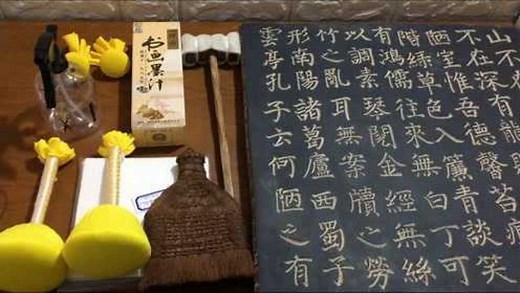 山不
不在深有龍
陋室惟吾德馨苔痕
階綠草色入簾青談笑
有鴻儒往來無白丁可
以調素琴閱金經無絲
竹之亂耳無案牘之勞
形南陽諸葛廬西蜀子
雲亭孔子云何陋之有
书画墨汁